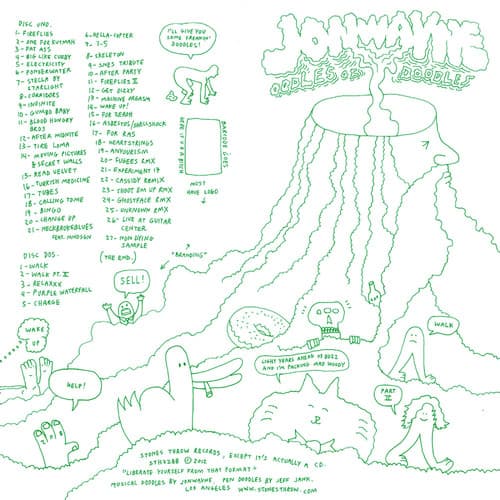 DISC UNO.
1- FIREFLIES
2- ODE FOR DUTMAH
3- FAT ASS
4- BIG LIKE CUBBY
5- ELECTRICITY
6- POWDERWATER
7- STELLA BY
STARLIGHT
8- CORRIDORS
9- INFINITE
10- GUMBO BABY
11- BLOOD HUNGRY
BROS
12- AFTER MIDNITE
13- TIRE LOMA
14- MOVING PICTURES
& SECRET WALLS
15- READ VELVET
16- TURKISH MEDICINE
17- TUBES
18- CALLING TOME
19- BINGO
20- CHANGE UP
21- NECKBROKEBLUES
FEAT. JNNDSGN
DISC DOS.
1- WALK
2- WALK PT. II
3- RELAXXX
4- PURPLE WATERFALL
5- CHARGE
6- HELLA-COPTER
7- 7-5
8- SKELETON
9- SNES TRIBUTE
10- AFTER PARTY
11- FIREFLIES II
12- GET DIZZY
13- MACHINE ARGASM
14- WAKE UP!
15- FOR DEAPH
16- ASBESTOS/SHELLSHOCK
17- FOR RAS
18- HEARTSTRINGS
19- ANYOURISM
20- FUGEES RMX
21- EXPERIMENT 17
22- CASSIDY REMIX
23- SHOOT EM UP RMX
24- GHOSTFACE RMX
25- UNKNOWN RMX
26- LIVE AT GUITAR
CENTER
27- MON DYING
SAMPLE
(THE END.)
I'LL GIVE YOU
SOME FREAKIN'
DOODLES!
BARCODE GOES
HERE
MUST
HAVE LOGO
"BRANDING"
JONWAYNE
OODLES OF DOODLES
SELL!
WAKE
UP
HELP!
WALK
LIGHT YEARS AHEAD OF BUZZ
AND I'M PACKING MAD WOODY
PART
II
STONES THROW RECORDS, EXCEPT IT'S ACTUALLY A CD.
STH2288 © 2012
"LIBERATE YOURSELF FROM THAT FORMAT."
MUSICAL DOODLES BY JONWAYNE PEN DOODLES BY JEFF JANK.
LOS ANGELES WWW.STONESTHROW.COM